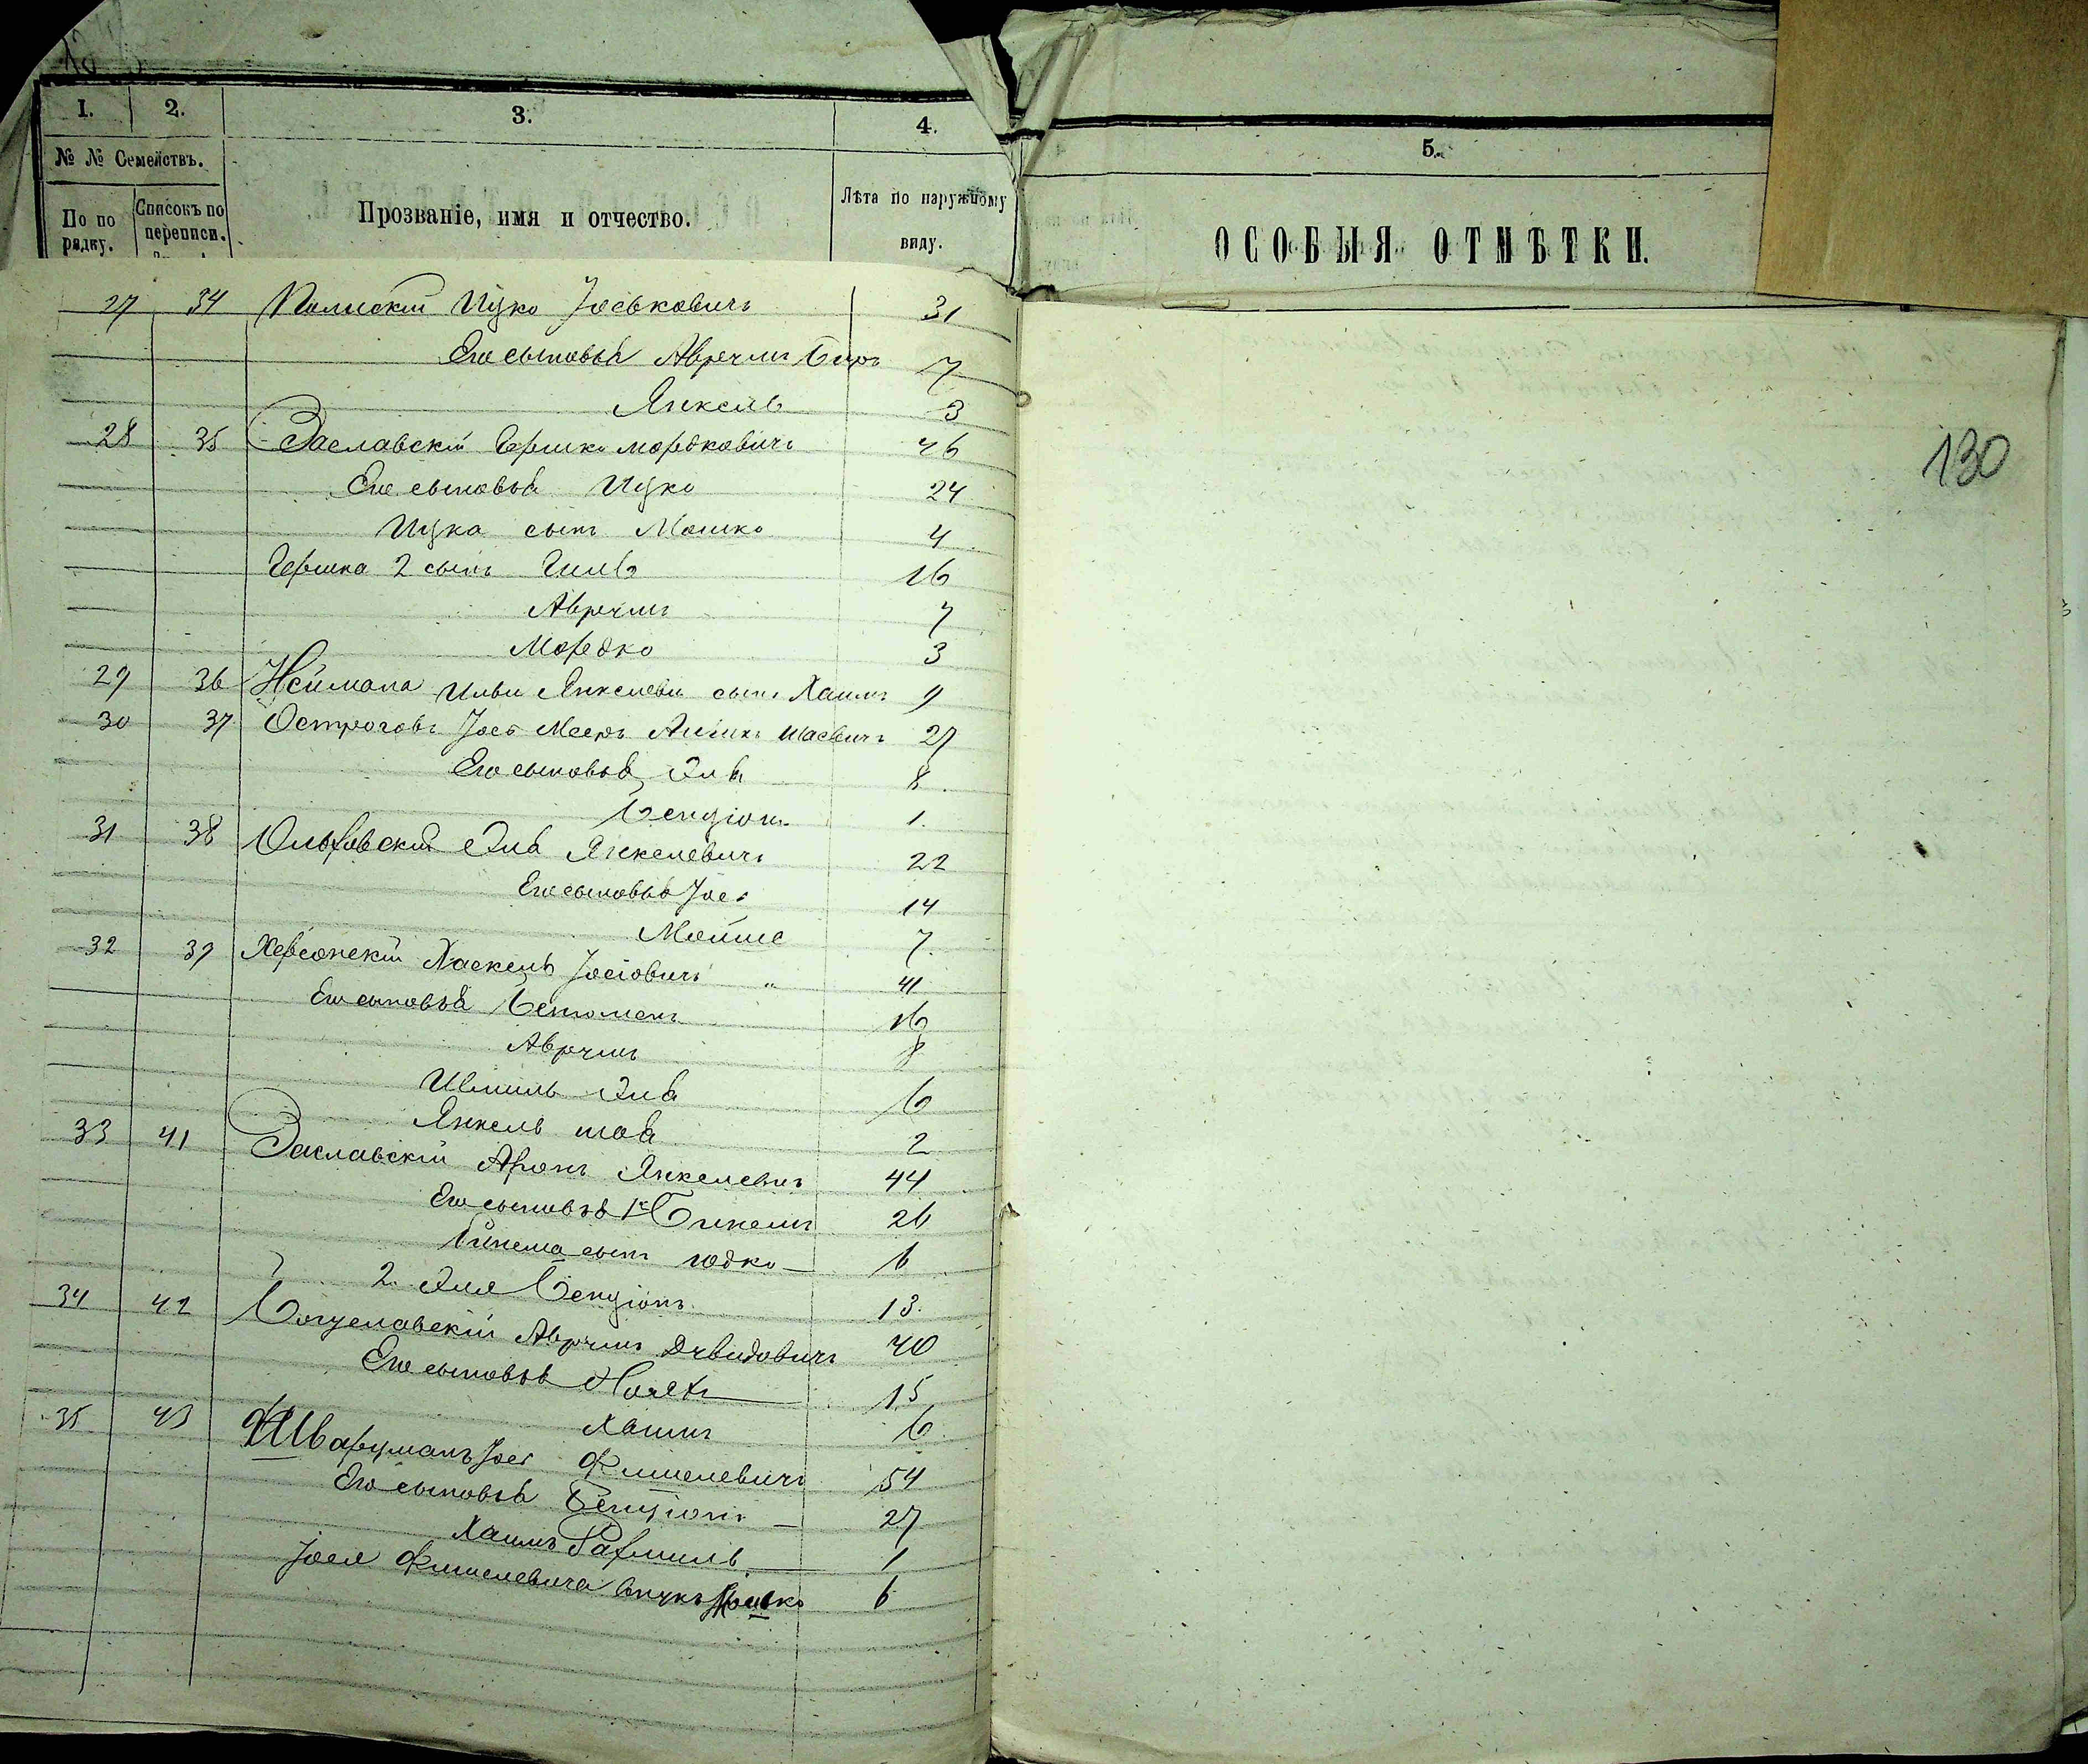 1. 2. 3. 4. 5.
№ № Семействъ.
По по рядку.
Списокъ по переписи.
Прозваніе, имя и отчество.
Лѣта по наружному виду.
ОСОБЫЯ ОТМѢТКИ.
130
27 34 Ицко Іоськовичъ 31
Его сыновья Авручмъ Беръ 7
Янкель 3
28 35 Заславскій Гершко Мордковичъ 46
Его сыновья Ицко 24
Ицка сынъ Мошко 4
Гершка 2 сынъ 16
Авручмъ 7
Мордко 3
29 36 Неймана Янкелева сынъ Хаимъ 9
30 37 Остроговъ Іось Мееръ 27
Его сыновья Эля 8
Бенціонъ 1.
31 38 Ольховскій Эля Янкелевичъ 22
Его сыновья Іось 14
Мойше 7.
32 39 Херсонскій Хаскель Іосіовичъ " 41
Его сыновья 16
Авручмъ 8
Эля 6
Янкель 2
33 41 Заславскій Аронъ Янкелевичъ 44
Его сыновья 1й 26
сынъ Юдко 6
2. Эля Бенціонъ 13.
34 42 Богуславскій Авручмъ Дувидовичъ 40
Его сыновья 15
Хаимъ 6
35 43 Шварцманъ Іось Фишелевичъ 54
Его сыновья Бенціонъ 27
Хаимъ 1
Іося Фишелевича внукъ 6